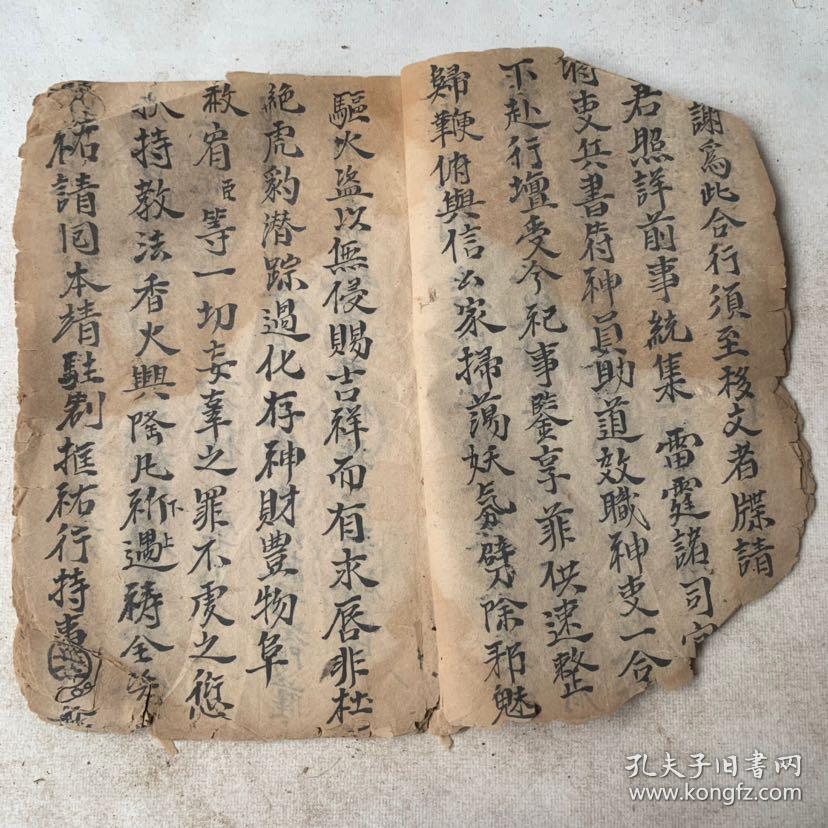 謝爲此合行須至移文者牒請
君照詳前事統集 雷霆諸司官
將吏兵書符神員助道效職神吏一合
下赴行壇受今祀事鑒享菲供速整
歸鞭俯與信公家掃蕩妖氛劈除邪魅
驅火盜以無侵賜吉祥而有求唇非杜
絶虎豹潜踪過化存神財豊物阜
赦宥臣等一切妄辜之罪不虔之愆
扶持教法香火興隆凡祈下上遇禱全
祐請囘本靖駐劄推祐行持事
孔夫子旧书网
www.kongfz.com